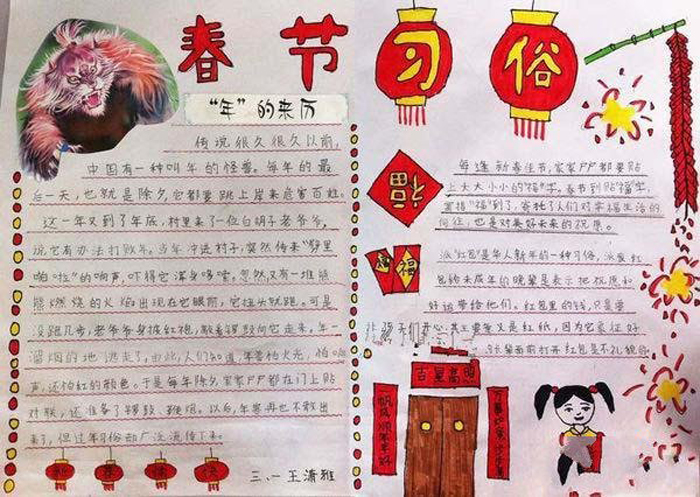 春节
习俗
“年”的来历
传说,很久很久以前,
中国有一种叫年的怪兽。每年的最
后一天,也就是除夕,它都要跳上岸来危害百姓。
这一年又到了年底,村里来了一位白胡子老爷爷,
说它有办法打败年。当年冲进村子,突然传来“噼里
啪啦”的响声,吓得它浑身哆嗦。忽然,又有一堆熊
熊燃烧的火焰出现在它眼前,它扭头就跑。可是
没跑几步,老爷爷身披红袍,敲着锣鼓向它走来。年一
溜烟的地逃走了。由此,人们知道,年害怕火光,怕响
声,还怕红的颜色。于是每年除夕,家家户户都在门上贴
对联,还准备了锣鼓、鞭炮。以后,年再也不敢出
来了,但过年习俗却广泛流传下来。
三.一 王潇雅
福
每逢新春佳节,家家户户都要贴
上大大小小的“福”字。春节到贴“福”字,
寄托了人们对幸福生活的
向往,也是对美好未来的祝愿。
福
派“红包”是华人新年的一种习俗,派发红
包给未成年的晚辈是表示把祝愿和
好运带给他们。红包里的钱,只是要
孩子们开心,其主要意义是红纸,因为它象征好
长辈面前打开红包是不礼貌的
吉星高照